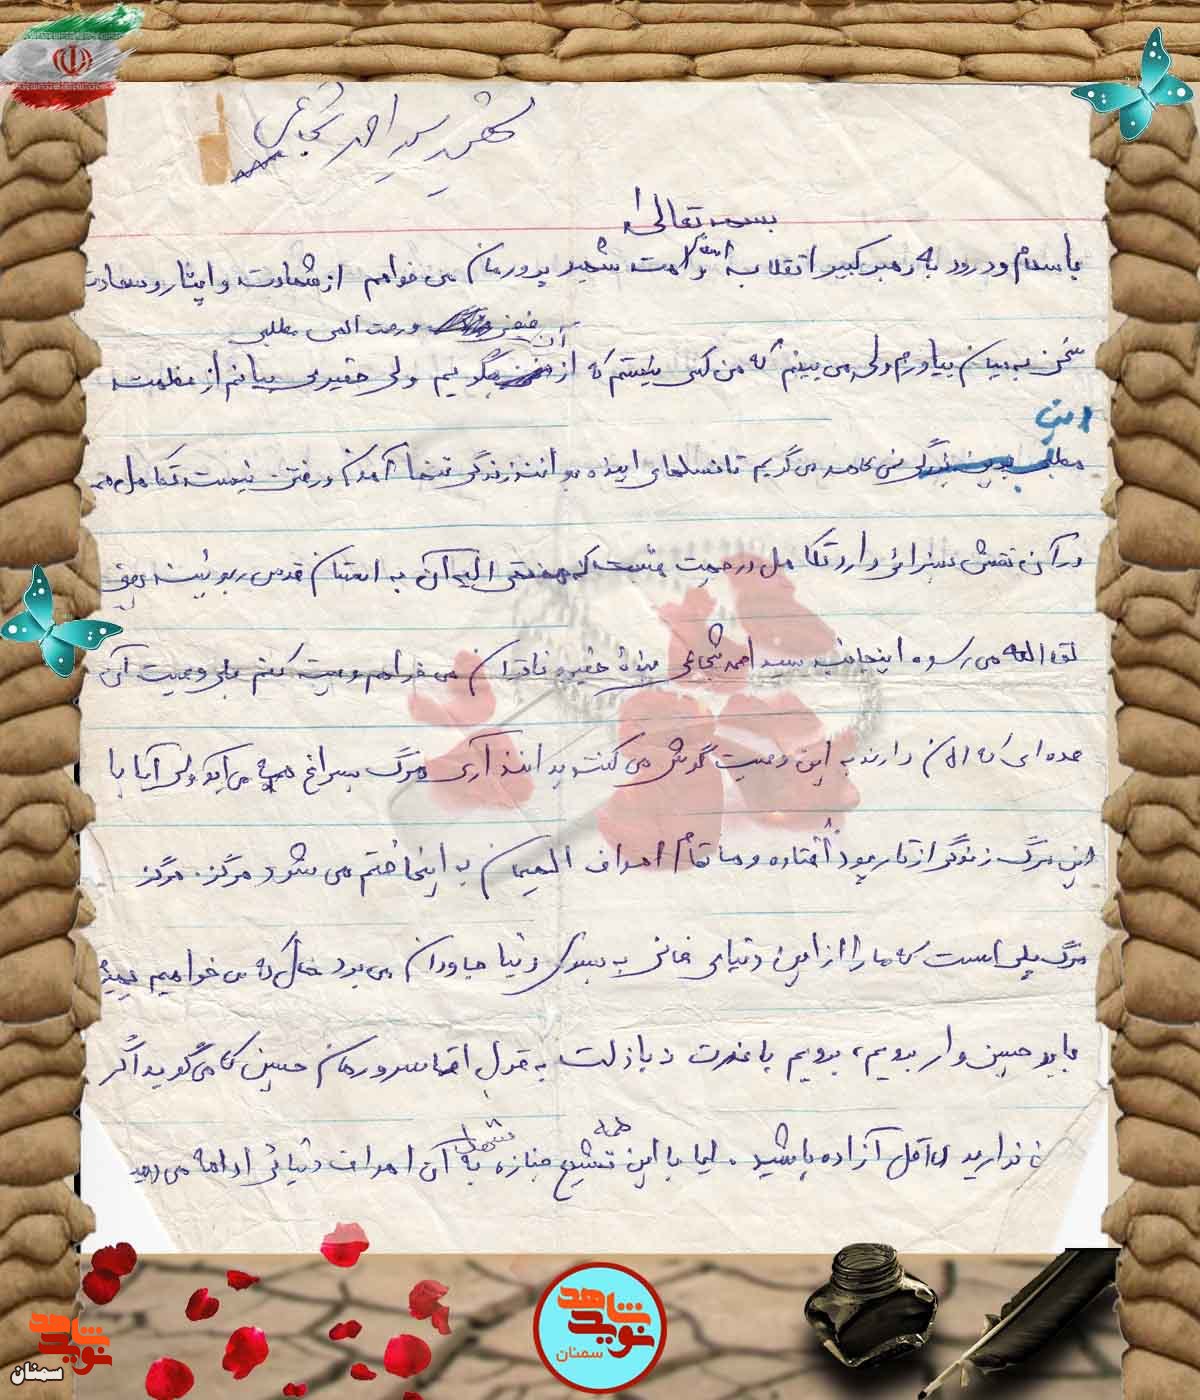 شهید سید احمد شجاعی
بسمه تعالی
با سلام و درود به رهبر کبیر انقلاب و امت شهید پرورمان می خواهم از شهادت و ایثار و سعادت
سخن به میان بیاورم ولی می بینم که من کسی نیستم که از آن فیض و رحمت الهی مطلبی بگویم ولی حقیر می بیانم از عظمت
این مطلب می گویم تا نسلهای اینده بدانند زندگی تنها آمدن و رفتن نیست تکامل هم
در آن نقش بسزائی دارد تکامل در جهت مثبت که به استان قدس ربوبیت یعنی
لقا الله می رسد. اینجانب سید احمد شجاعی بندۀ حقیر و ناتوان می خواهم وصیت کنم بلی وصیت آن
عده ای که الان دارند به این وصیت گوش می کنند بدانند آری مرگ بسراغ همه می آید ولی آیا با
این مرگ زندگی از تار پود افتاده و ما تمام اهداف الهیمان به اینجا ختم می شود هرگز. هرگز
مرگ پلی است که ما را از این دنیای فانی به سوی دنیا جاودان می برد حال که می خواهیم
باید حسین وار برویم، برویم با عزت نه با ذلت به قول اقا سرورمان حسین که می گوید اگر
ندارید لااقل آزاده باشید. ایا با این همه تشیع جنازه شهدا به آن اهداف دنیائی ادامه می دهید
نوید شاهد
سمنان
نوید شاهد
سمنان